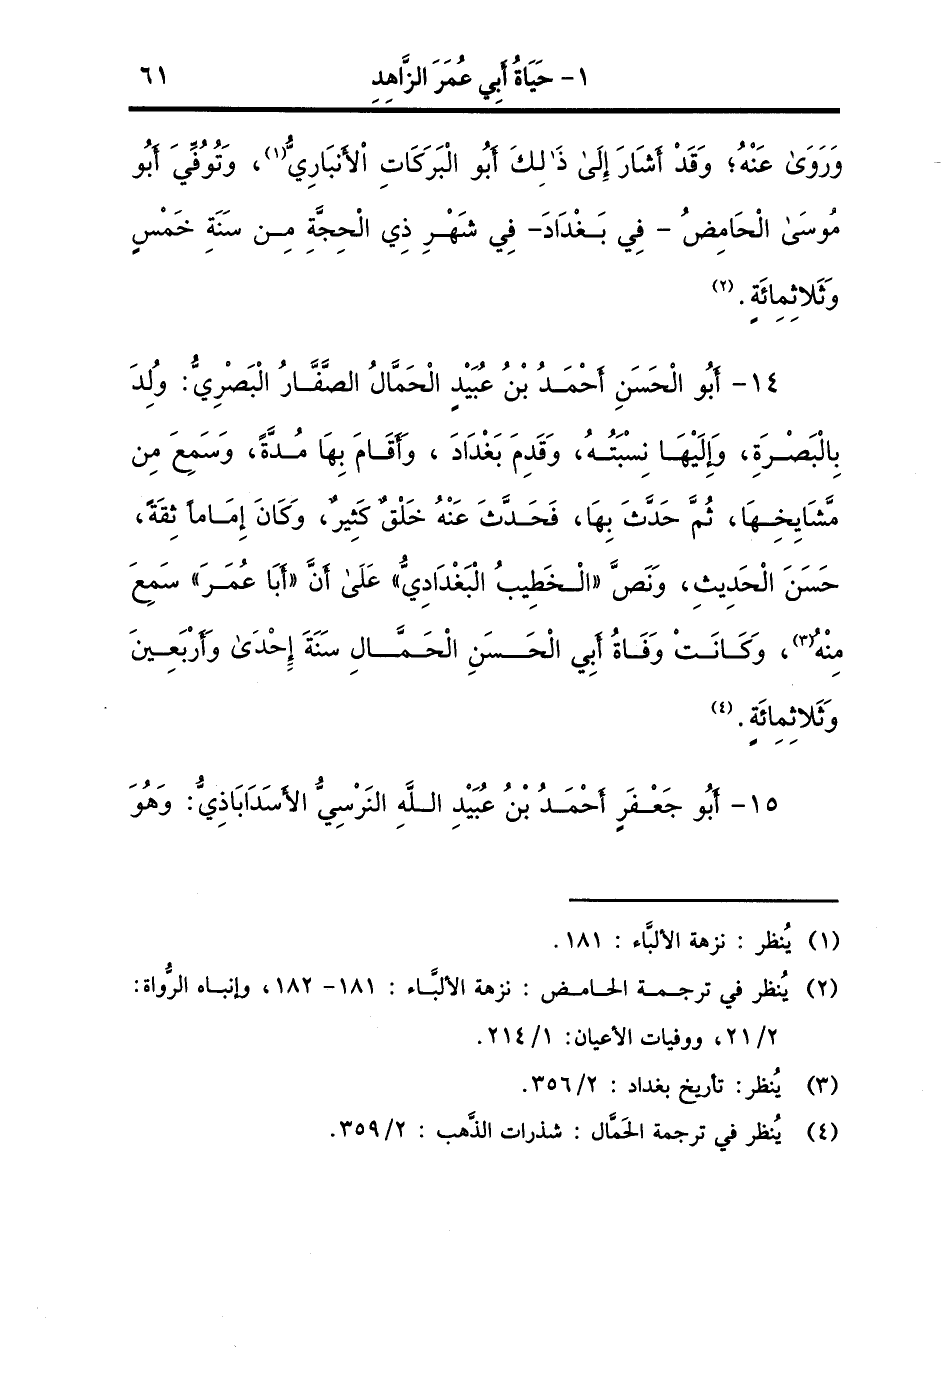 ١- حَيَاةُ أَبِي عُمَرَ الزَّاهِدِ ٦١
وَرَوَىٰ عَنْهُ؛ وَقَدْ أَشَارَ إِلَىٰ ذَٰلِكَ أَبُو الْبَرَكَاتِ الْأَنْبَارِيُّ(١)، وَتُوُفِّيَ أَبُو
مُوسَىٰ الْحَامِضُ - فِي بَغْدَادَ- فِي شَهْرِ ذِي الْحِجَّةِ مِن سَنَةِ خَمْسٍ
وَثَلَاثِمِائَةٍ. (٢)
١٤- أَبُو الْحَسَنِ أَحْمَدُ بْنُ عُبَيْدٍ الْحَمَّالُ الصَّفَّارُ الْبَصْرِيُّ: وُلِدَ
بِالْبَصْرَةِ، وَإِلَيْهَا نِسْبَتُهُ، وَقَدِمَ بَغْدَادَ ، وَأَقَامَ بِهَا مُدَّةً، وَسَمِعَ مِن
مَّشَايِخِهَا، ثُمَّ حَدَّثَ بِهَا، فَحَدَّثَ عَنْهُ خَلْقٌ كَثِيرٌ، وَكَانَ إِمَاماً ثِقَةً،
حَسَنَ الْحَدِيثِ، وَنَصَّ «الْخَطِيبُ الْبَغْدَادِيُّ» عَلَىٰ أَنَّ «أَبَا عُمَرَ» سَمِعَ
مِنْهُ(٣)، وَكَانَتْ وَفَاةُ أَبِي الْحَسَنِ الْحَمَّالِ سَنَةَ إِحْدَىٰ وَأَرْبَعِينَ
وَثَلَاثِمِائَةٍ. (٤)
١٥- أَبُو جَعْفَرٍ أَحْمَدُ بْنُ عُبَيْدِ اللَّهِ النَّرْسِيُّ الْأَسَدَابَاذِيُّ: وَهُوَ
(١) يُنظر : نزهة الألبَّاء : ١٨١.
(٢) يُنظر في ترجمة الحامض : نزهة الألبَّاء : ١٨١- ١٨٢، وإنباه الرُّواة:
٢١/٢، ووفيات الأعيان: ٢١٤/١.
(٣) يُنظر: تأريخ بغداد : ٣٥٦/٢.
(٤) يُنظر في ترجمة الحَمَّال : شذرات الذَّهب : ٣٥٩/٢.